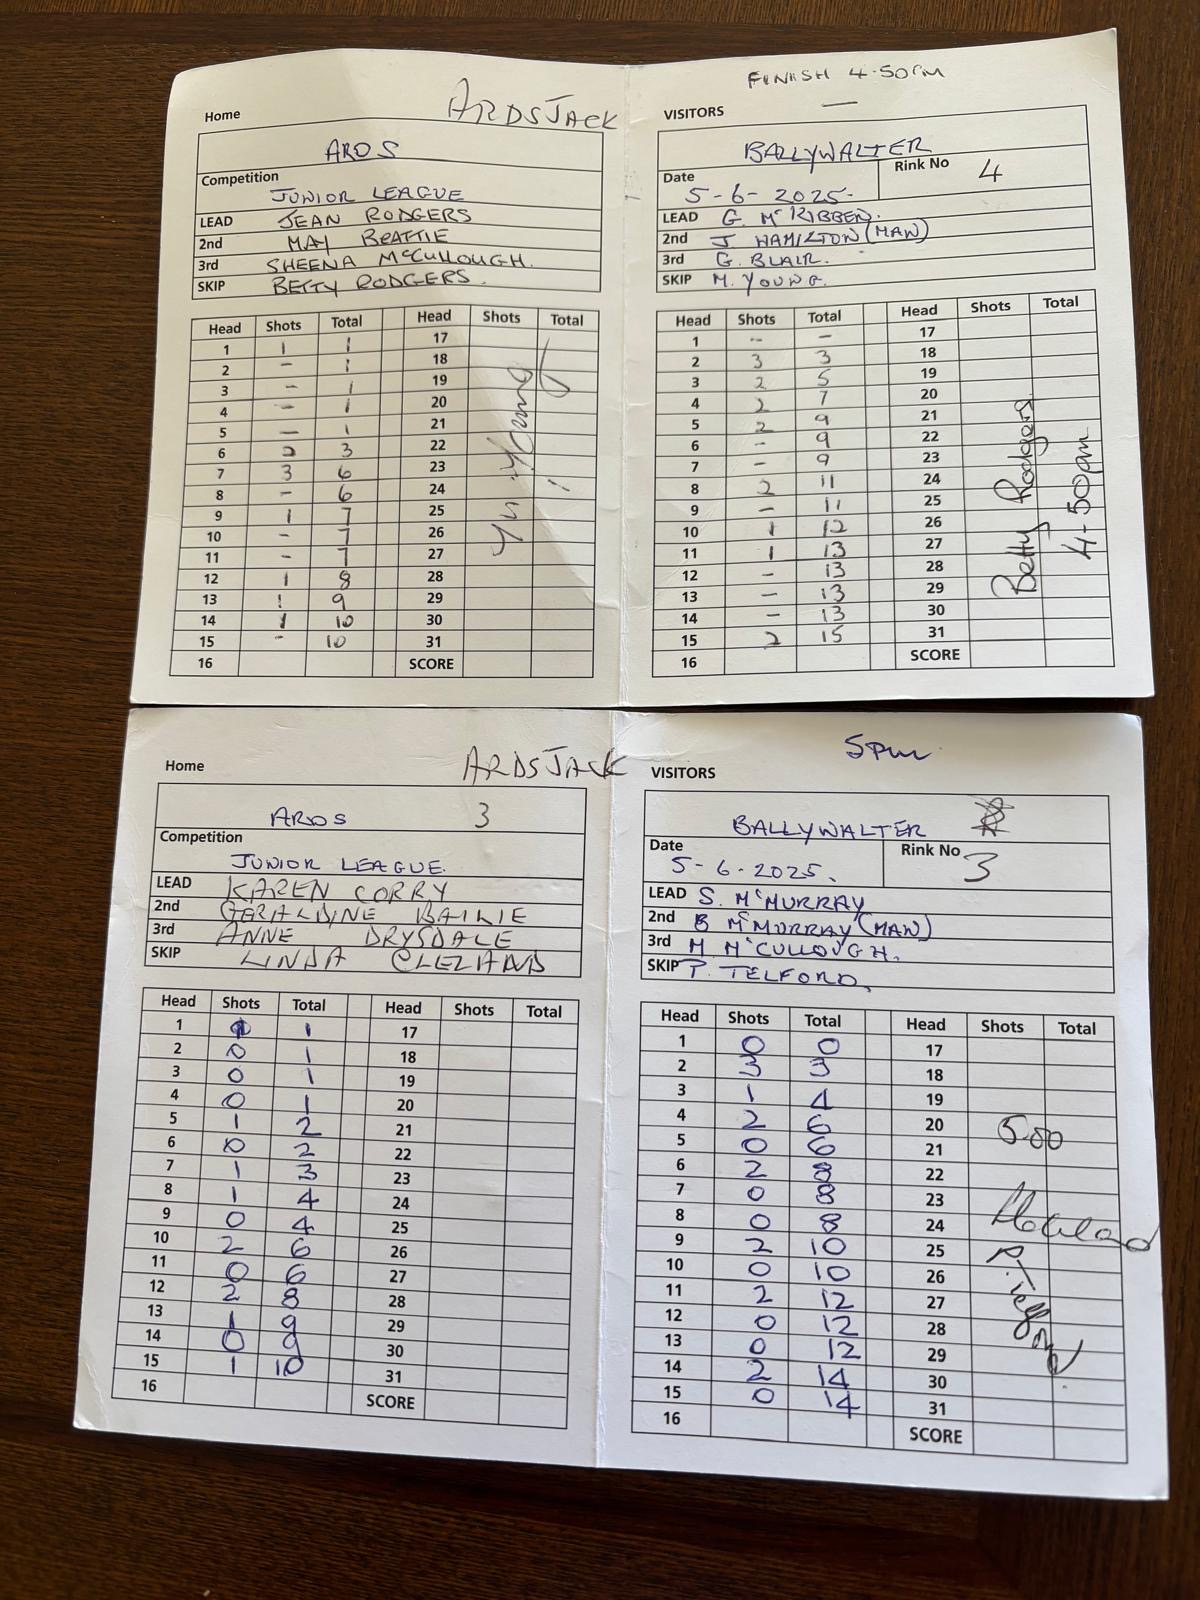 Home ARDS JACK
ARDS
Competition
JUNIOR LEAGUE
LEAD JEAN RODGERS
2nd MAY BEATTIE
3rd SHEENA McCULLOUGH.
SKIP BETTY RODGERS.
Head Shots Total Head Shots Total
1 1 1 17
2 - 1 18
3 - 1 19
4 - 1 20
5 - 1 21
6 2 3 22
7 3 6 23
8 - 6 24
9 1 7 25
10 - 7 26
11 - 7 27
12 1 8 28
13 1 9 29
14 1 10 30
15 - 10 31
16 SCORE
FINISH 4.50PM
VISITORS
BALLYWALTER
Date Rink No 4
5-6-2025.
LEAD G. McKIBBEN.
2nd J HAMILTON (MAN)
3rd G. BLAIR.
SKIP M. YOUNG.
Head Shots Total Head Shots Total
1 - - 17
2 3 3 18
3 2 5 19
4 2 7 20
5 2 9 21
6 - 9 22
7 - 9 23
8 2 11 24
9 - 11 25
10 1 12 26
11 1 13 27
12 - 13 28
13 - 13 29
14 - 13 30
15 2 15 31
16 SCORE
Betty Rodgers
4-50pm
Home ARDS JACK
ARDS 3
Competition
JUNIOR LEAGUE.
LEAD KAREN CORRY
2nd GERALDINE BAILIE
3rd ANNE DRYSDALE
SKIP LINDA CLELAND
Head Shots Total Head Shots Total
1 1 1 17
2 0 1 18
3 0 1 19
4 0 1 20
5 1 2 21
6 0 2 22
7 1 3 23
8 1 4 24
9 0 4 25
10 2 6 26
11 0 6 27
12 2 8 28
13 1 9 29
14 0 9 30
15 1 10 31
16 SCORE
5pm
VISITORS
BALLYWALTER
Date Rink No 3
5-6-2025.
LEAD S. McMURRAY
2nd B McMURRAY (MAN)
3rd M. McCULLOUGH.
SKIP P. TELFORD.
Head Shots Total Head Shots Total
1 0 0 17
2 3 3 18
3 1 4 19
4 2 6 20
5 0 6 21
6 2 8 22
7 0 8 23
8 0 8 24
9 2 10 25
10 0 10 26
11 2 12 27
12 0 12 28
13 0 12 29
14 2 14 30
15 0 14 31
16 SCORE
5.00
P. Telford